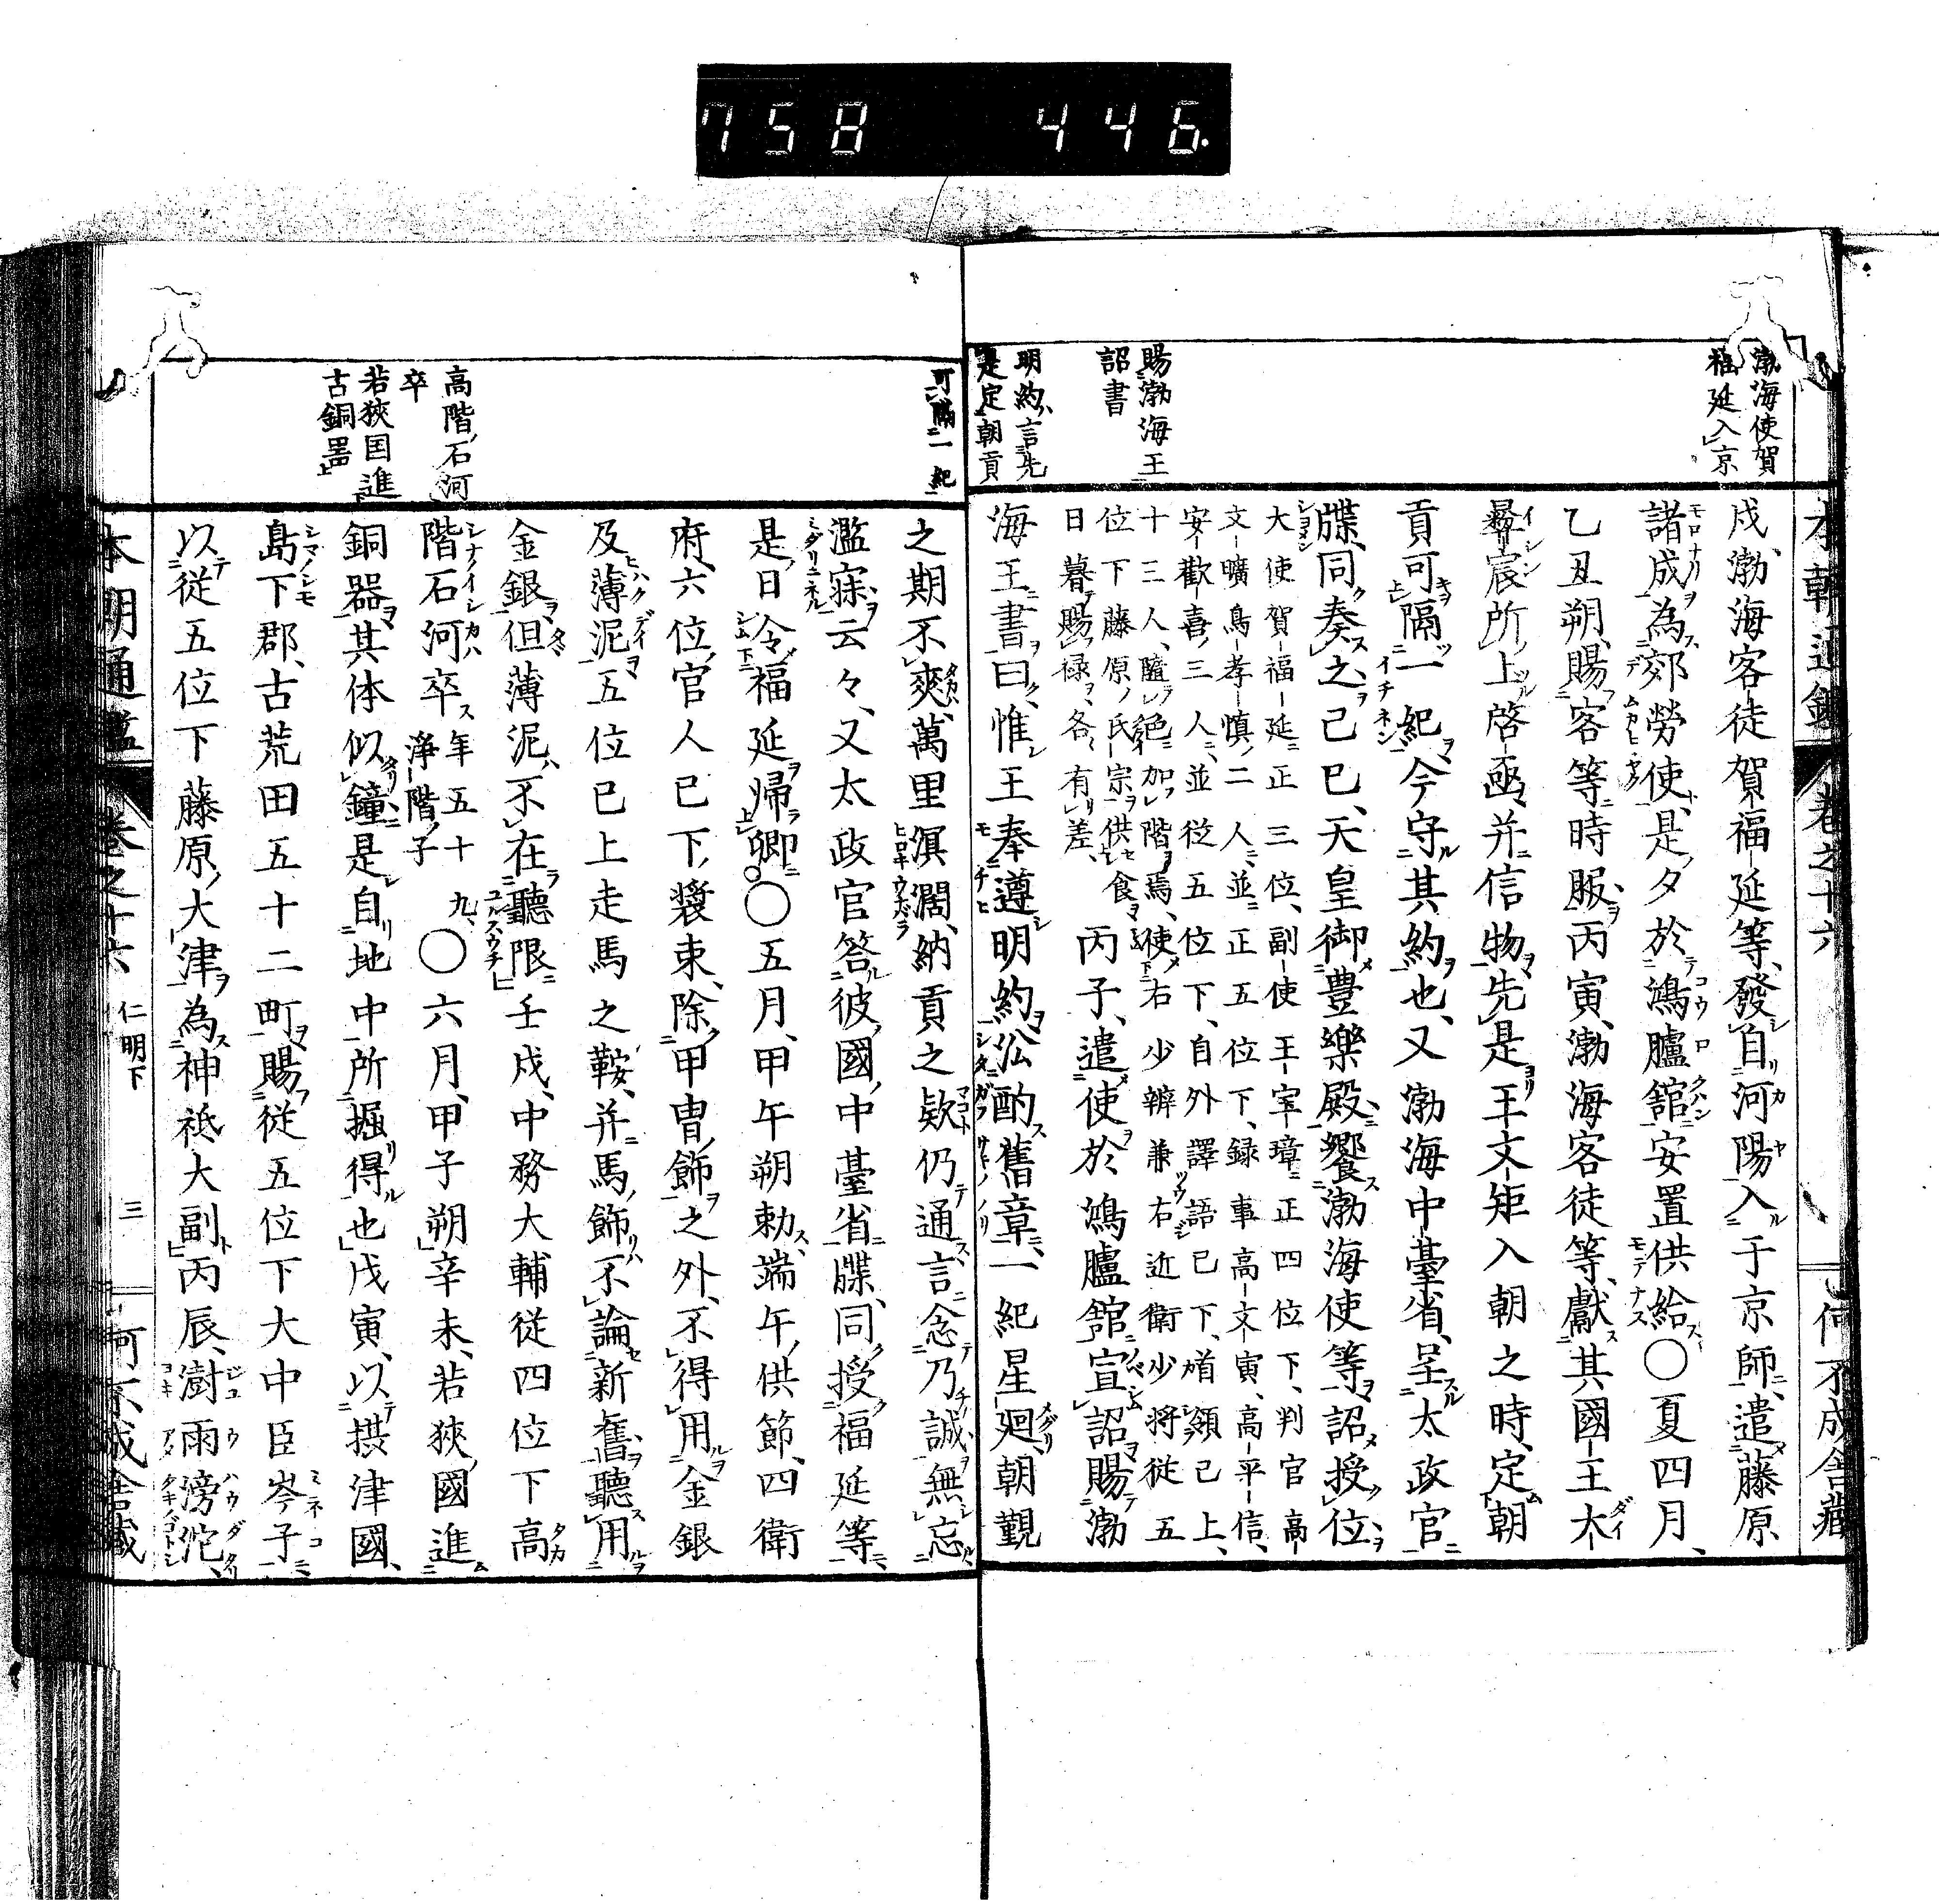 758 446.
渤海使賀
福延入京
賜渤海王
詔書
明約言先
是定朝貢
戌、渤海客徒賀福延等、發自河陽、入于京師、遣藤原
諸成為郊勞使、是夕於鴻臚館安置供給〇夏四月、
乙丑朔、賜客等時服、丙寅、渤海客徒等、獻其國王大
彝宸所上啓函、并信物、先是王文矩入朝之時、定朝
貢可隔一紀、今守其約也、又渤海中臺省、呈太政官
牒、同奏之、己巳、天皇御豊樂殿、饗渤海使等、詔授位、
大使賀福延正三位、副使王宰璋正四位下、判官高
文暄烏孝慎二人、並正五位下、録事高文寅、高平信、
安歡喜三人、並從五位下、自外譯語已下、首領已上、
十三人、隨色加階焉、使右少辨兼右近衛少将從五
位下藤原氏宗供食
日暮賜禄、各有差、
丙子、遣使於鴻臚館、宣詔賜渤
海王書曰、惟王奉遵明約、沿酌舊章、一紀星廻、朝覲
可隔一紀
高階石河
卒
若狹国進
古銅器
之期不爽、萬里溟濶、納貢之欵仍通、言念乃誠、無忘
濫寐云々、又太政官答彼國中臺省牒、同授福延等、
是日令福延歸郷、〇五月、甲午朔勅、端午供節、四衛
府、六位官人已下、裝束、除甲冑飾之外、不得用金銀
及薄泥、五位已上走馬之鞍、并馬飾、不論新舊聽用
金銀、但薄泥不在聽限、壬戌、中務大輔從四位下高
階石河卒年五十九、
浄階子
〇六月、甲子朔、辛未、若狹國進
銅器、其体似鐘、是自地中所掘得也、戊寅、以摂津國、
島下郡、古荒田五十二町、賜從五位下大中臣岑子、
以從五位下藤原大津為神祗大副、丙辰、澍雨滂沱、
本朝通鑑 卷之十六 仁明下 三